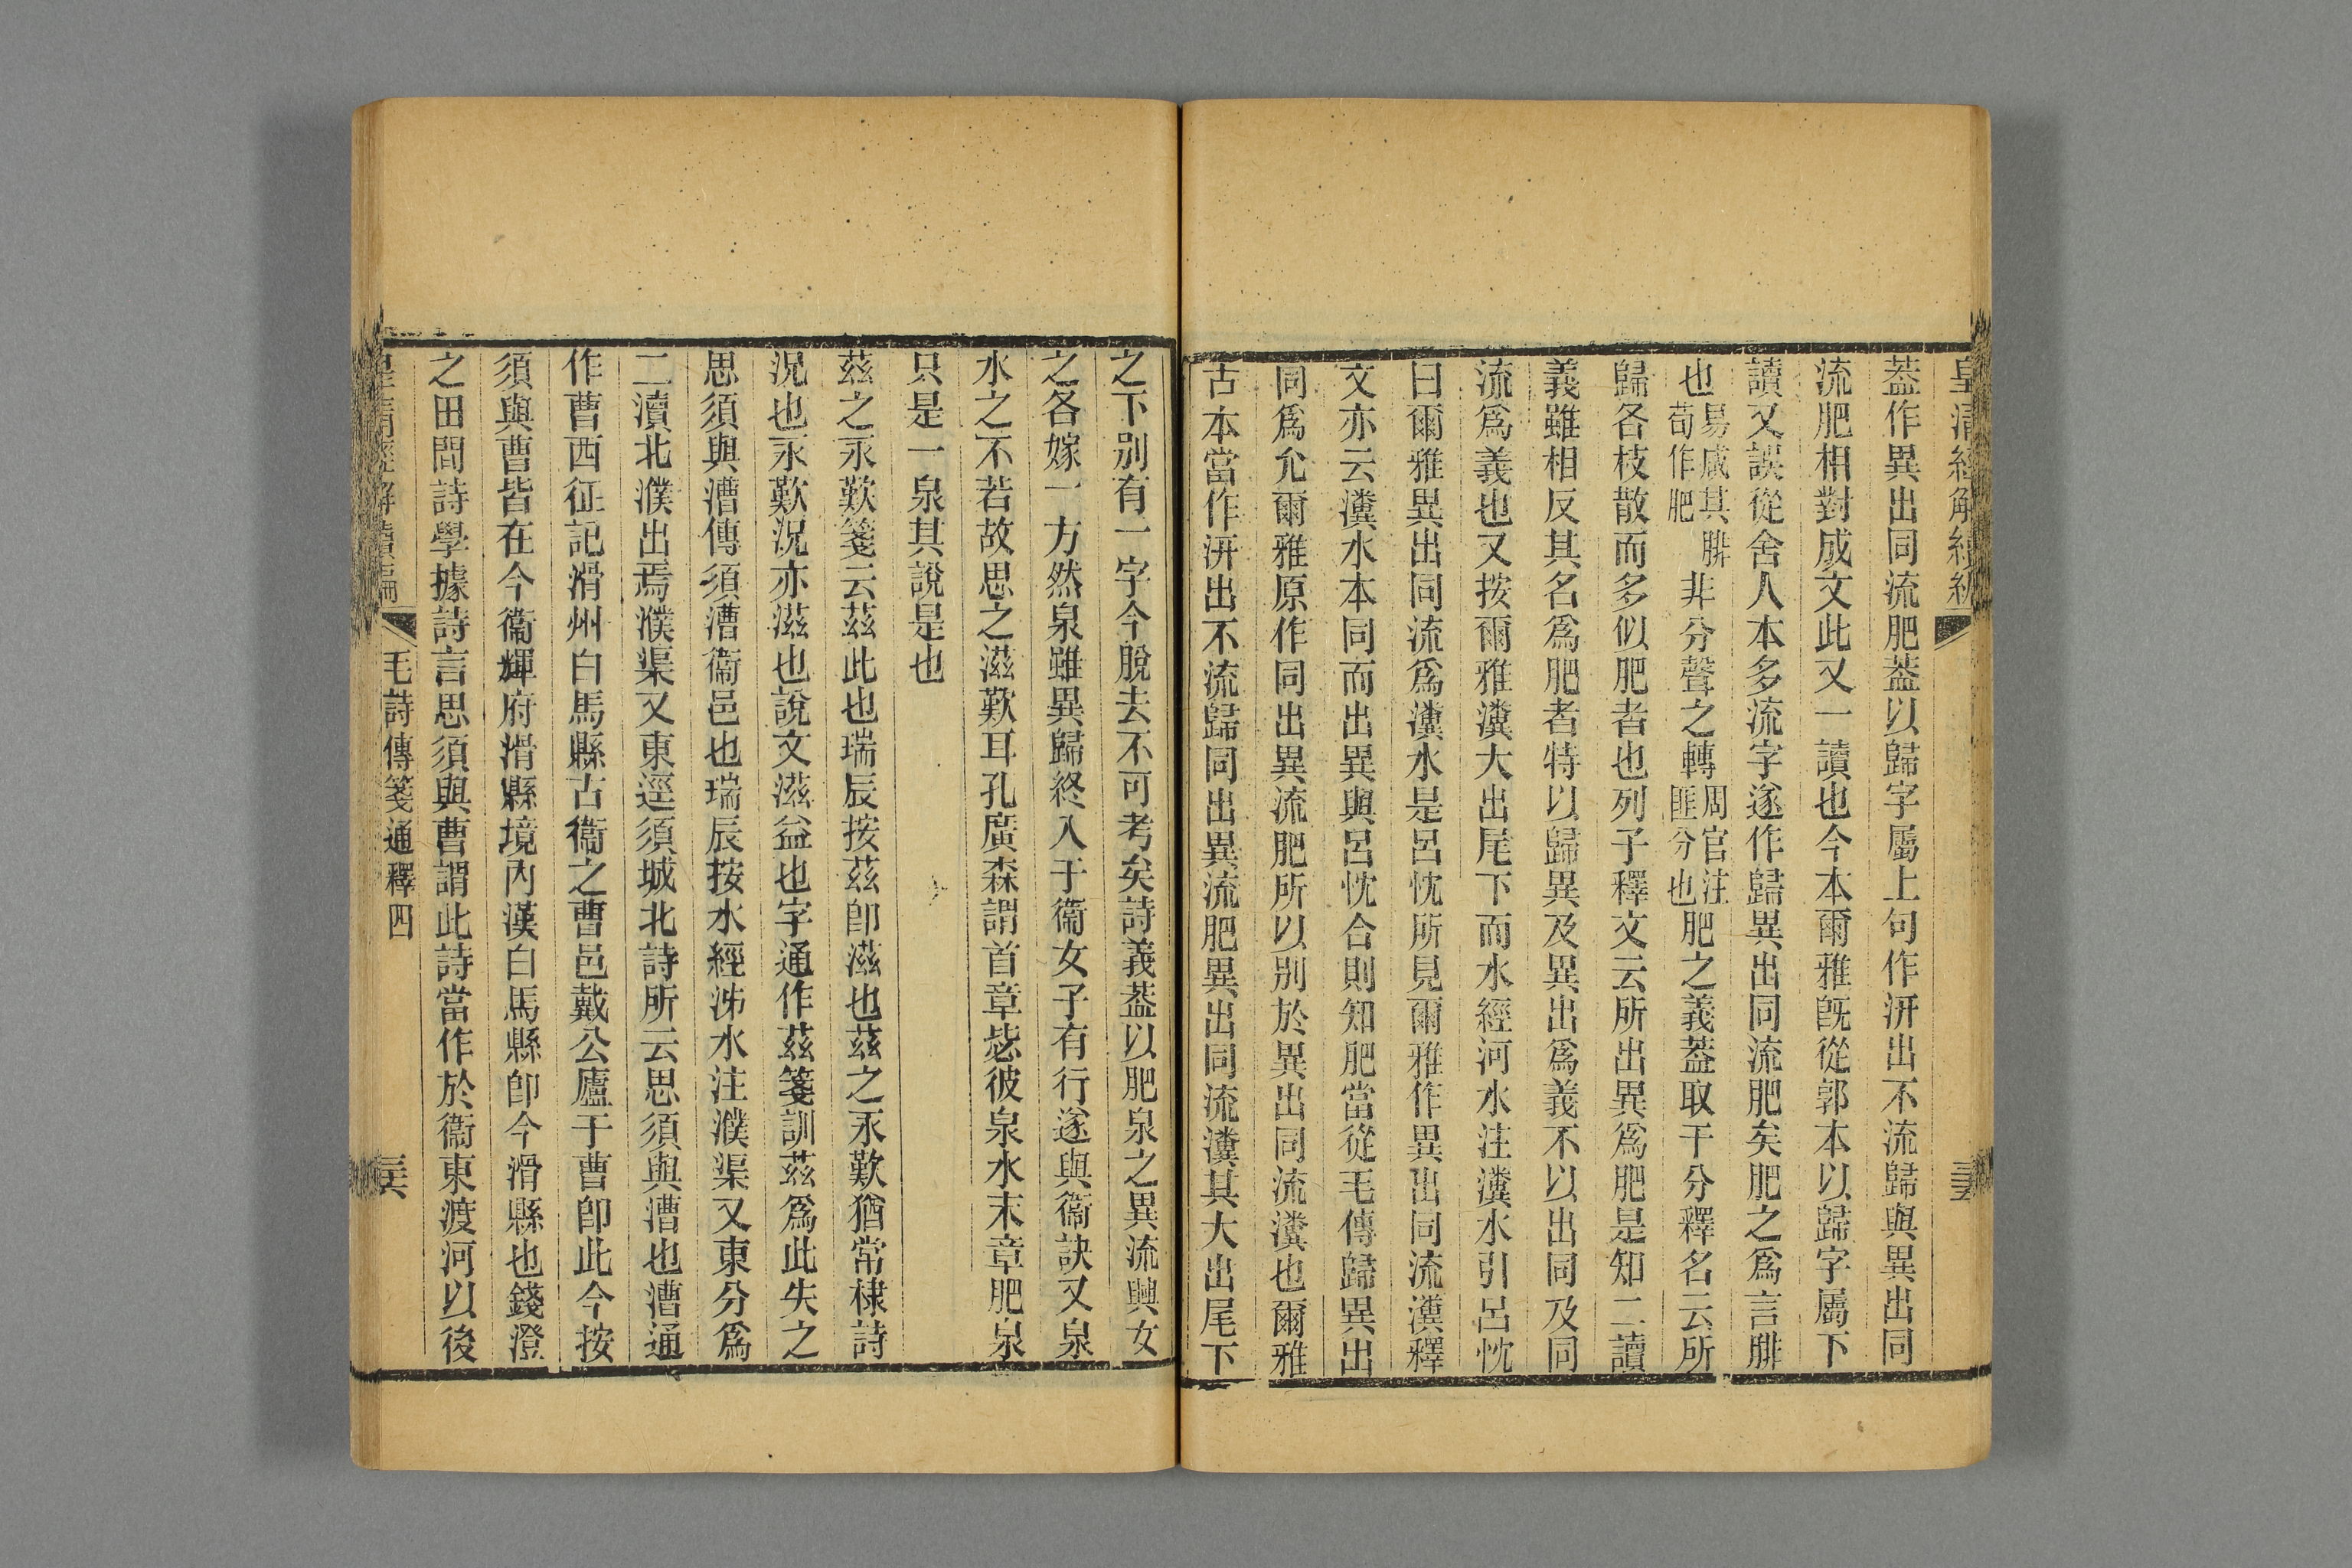 皇清經解續編
蓋作異出同流肥蓋以歸字屬上句作汧出不流歸與異出同
流肥相對成文此又一讀也今本爾雅旣從郭本以歸字屬下
讀又誤從舍人本多流字遂作歸異出同流肥矣肥之爲言腓
也易咸其腓荀作肥非分聲之轉周官注匪分也肥之義蓋取干分釋名云所
歸各枝散而多似肥者也列子釋文云所出異爲肥是知二讀
義雖相反其名爲肥者特以歸異及異出爲義不以出同及同
流爲義也又按爾雅瀵大出尾下而水經河水注瀵水引呂忱
曰爾雅異出同流爲瀵水是呂忱所見爾雅作異出同流瀵釋
文亦云瀵水本同而出異與呂忱合則知肥當從毛傳歸異出
同爲允爾雅原作同出異流肥所以別於異出同流瀵也爾雅
古本當作汧出不流歸同出異流肥異出同流瀵其大出尾下
之下別有一字今脫去不可考矣詩義蓋以肥泉之異流興女
之各嫁一方然泉雖異歸終入于衞女子有行遂與衞訣又泉
水之不若故思之滋歎耳孔廣森謂首章毖彼泉水末章肥泉
只是一泉其說是也
茲之永歎箋云茲此也瑞辰按茲卽滋也茲之永歎猶常棣詩
況也永歎況亦滋也說文滋益也字通作茲箋訓茲爲此失之
思須與漕傳須漕衞邑也瑞辰按水經泲水注濮渠又東分爲
二瀆北濮出焉濮渠又東逕須城北詩所云思須與漕也漕通
作曹西征記滑州白馬縣古衞之曹邑戴公廬于曹卽此今按
須與曹皆在今衞輝府滑縣境內漢白馬縣卽今滑縣也錢澄
之田間詩學據詩言思須與曹謂此詩當作於衞東渡河以後
皇清經解續編 毛詩傳箋通釋四